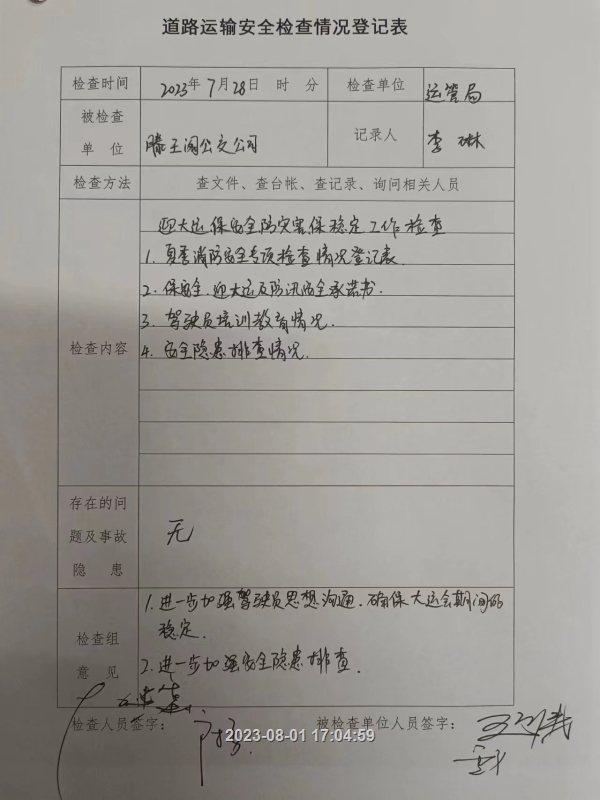 道路运输安全检查情况登记表
检查时间 2023年 7月28日 时 分 检查单位 运管局
被检查
单 位 滕王阁公交公司 记录人 李琳
检查方法 查文件、查台帐、查记录、询问相关人员
迎大运保安全防灾害保稳定工作检查
1. 夏季消防安全专项检查情况登记表
2. 保安全.迎大运及防汛安全承诺书.
3. 驾驶员培训教育情况.
检查内容
4. 安全隐患排查情况.
存在的问
题及事故
隐 患
无
1. 进一步加强驾驶员思想沟通.确保大运会期间的
稳定.
检查组
意 见
2. 进一步加强安全隐患排查.
检查人员签字: 被检查单位人员签字:
2023-08-01 17:04:59